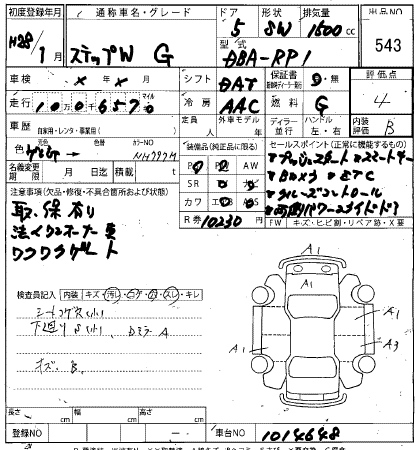 初度登録年月 通称車名・グレード ドア 形状 排気量 出品NO
H28/1月 ステップW G 5 SW 1500cc 543
型式 DBA-RP1
車検 × 年 × 月 シフト DAT 保証書 有・無 評価点 4
走行 100,657マイル 冷房 AAC 燃料 G
車歴 自家用・レンタ・事業用( ) 定員 人 外車モデル 年 ディーラー 並行 ハンドル 左・右 内装評価 B
色 元色 カラーNO NH797M
装備品(純正品に限る) セールスポイント(正常に機能するもの)
・プッシュスタート・スマートキー
名義変更期限 月 日迄 積載 t PS PW AW
・Bカメラ ・ETC
注意事項(欠品・修復・不具合箇所および状態) SR ナビ
・クルーズコントロール
取、保有り カワ エアB ABS
・両側パワースライドドア
法人ワンオーナー車 R券 10230
FW キズ・ヒビ割・リペア跡・X要
ワクワクゲート
検査員記入 内装 キズ・汚レ・コゲ・穴・スレ・キレ
シートコゲ穴小
下廻りS小
キズ、B
A1
A1
A1
A1 A3
長さ cm 幅 cm 高さ cm
登録NO 車台NO 1014648